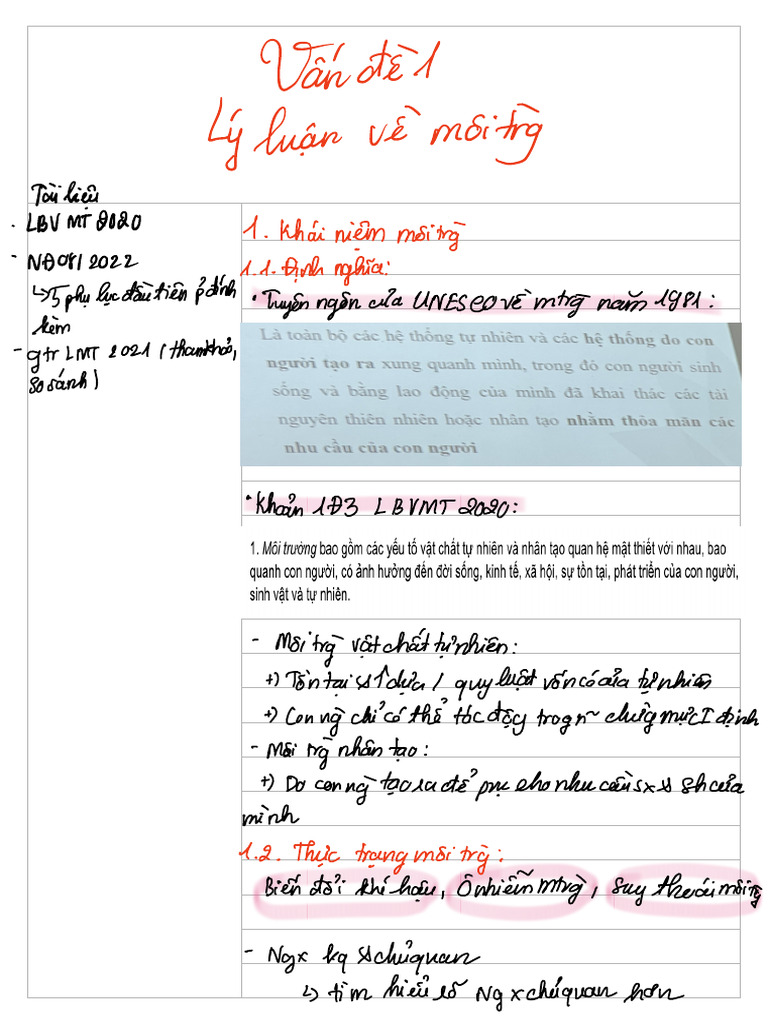 Vấn đề 1
Lý luận về môi trg
Tài liệu
. LBVMT 2020
- NĐ08/2022
↳ 5 phụ lục đầu tiên ở đính
kèm
- gtr LMT 2021 (tham khảo,
so sánh)
1. Khái niệm môi trg
1.1. Định nghĩa:
• Tuyên ngôn của UNESCO về mtrg năm 1981:
Là toàn bộ các hệ thống tự nhiên và các hệ thống do con
người tạo ra xung quanh mình, trong đó con người sinh
sống và bằng lao động của mình đã khai thác các tài
nguyên thiên nhiên hoặc nhân tạo nhằm thỏa mãn các
nhu cầu của con người
• Khoản 1Đ3 LBVMT 2020:
1. Môi trường bao gồm các yếu tố vật chất tự nhiên và nhân tạo quan hệ mật thiết với nhau, bao
quanh con người, có ảnh hưởng đến đời sống, kinh tế, xã hội, sự tồn tại, phát triển của con người,
sinh vật và tự nhiên.
- Môi trg vật chất tự nhiên:
+) Tồn tại & ↑ dựa / quy luật vốn có của tự nhiên
+) Con ng chỉ có thể tác độg trog n~ chừg mực I định
- Môi trg nhân tạo:
+) Do con ng tạo ra để pvụ cho nhu cầu sx & sh của
mình
1.2. Thực trạng môi trg:
Biến đổi khí hậu, Ô nhiễm mtrg, Suy thoái môi trg
- Ng x kq & chủ quan
↳ tìm hiểu rõ Ng x chủ quan hơn